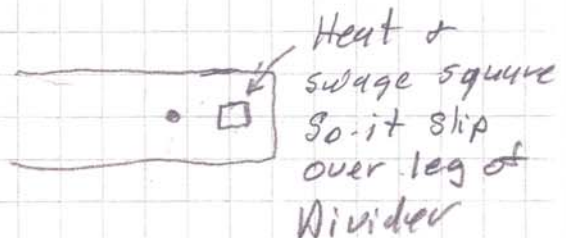 Heat &
swage square
So-it slip
over leg of
Divider